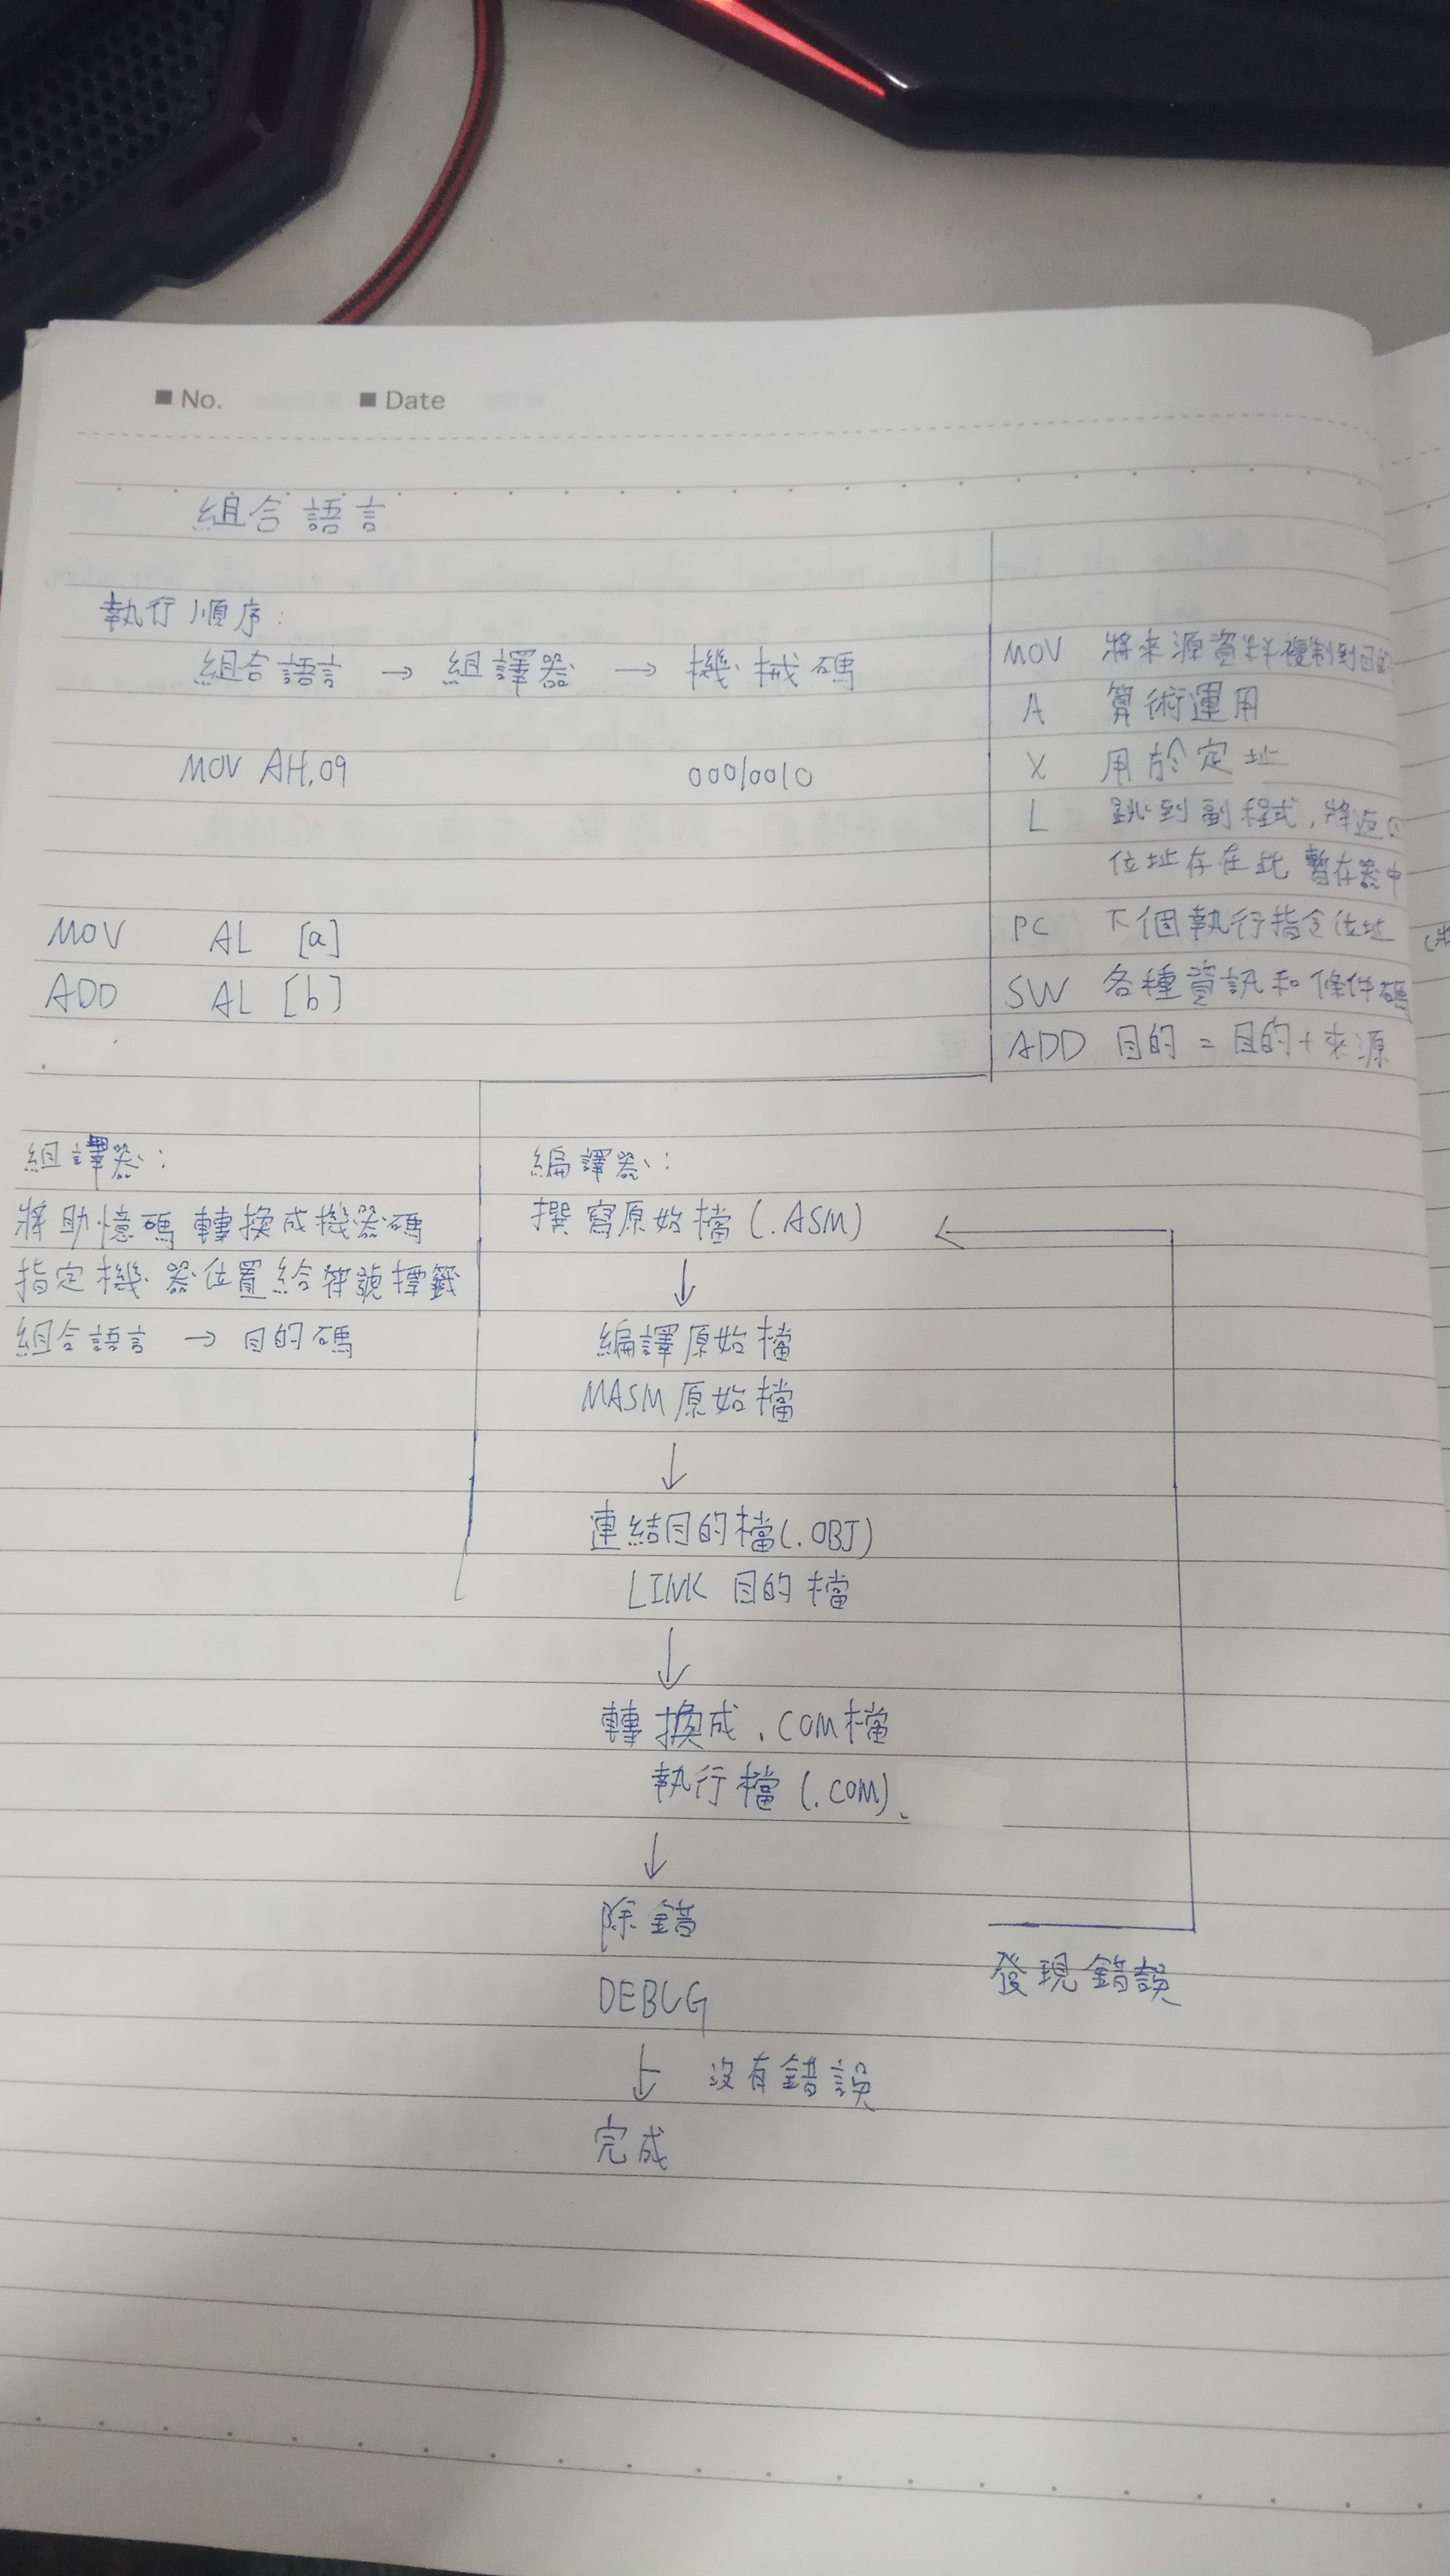 No. Date
組合語言
執行順序:
組合語言 → 組譯器 → 機械碼
MOV AH,09 00010010
MOV AL [a]
ADD AL [b]
MOV 將來源資料複製到目的
A 算術運用
X 用於定址
L 跳到副程式,將返回
位址存在此暫存器中
PC 下個執行指令位址
SW 各種資訊和條件碼
ADD 目的 = 目的 + 來源
組譯器:
將助憶碼轉換成機器碼
指定機器位置給符號標籤
組合語言 → 目的碼
編譯器:
撰寫原始檔 (.ASM)
↓
編譯原始檔
MASM 原始檔
↓
連結目的檔(.OBJ)
LINK 目的檔
↓
轉換成.COM檔
執行檔 (.COM)
↓
除錯
DEBUG
發現錯誤
↓ 沒有錯誤
完成